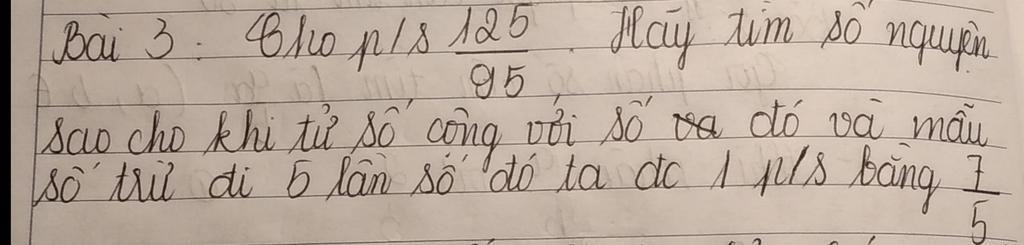 Bài 3: Cho p/s 125/95. Hãy tìm số nguyên
sao cho khi tử số cộng với số đó và mẫu
số trừ đi 5 lần số đó ta đc 1 p/s bằng 7/5